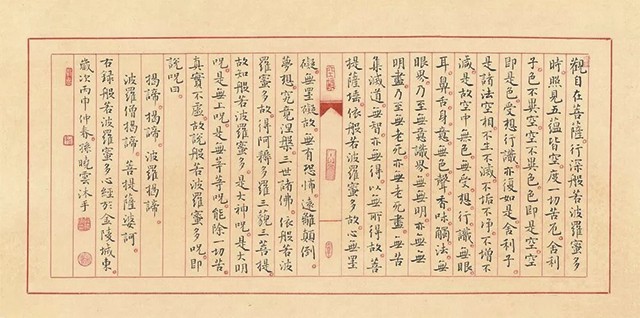 觀自在菩薩行深般若波羅蜜多
時照見五蘊皆空度一切苦厄舍利
子色不異空空不異色色即是空空
即是色受想行識亦復如是舍利子
是諸法空相不生不滅不垢不淨不增不
減是故空中無色無受想行識無眼
耳鼻舌身意無色聲香味觸法無
眼界乃至無意識界無無明亦無無
明盡乃至無老死亦無老死盡無苦
集滅道無智亦無得以無所得故菩
提薩埵依般若波羅蜜多故心無罣
礙無罣礙故無有恐怖遠離顛倒
夢想究竟涅槃三世諸佛依般若波
羅蜜多故得阿耨多羅三藐三菩提
故知般若波羅蜜多是大神呪是大明
呪是無上呪是無等等呪能除一切苦
真實不虛故說般若波羅蜜多呪即
說呪曰
揭諦揭諦 波羅揭諦
波羅僧揭諦 菩提薩婆訶
右錄般若波羅蜜多心經於金陵城東
歲次丙申仲春孫曉雲沐手